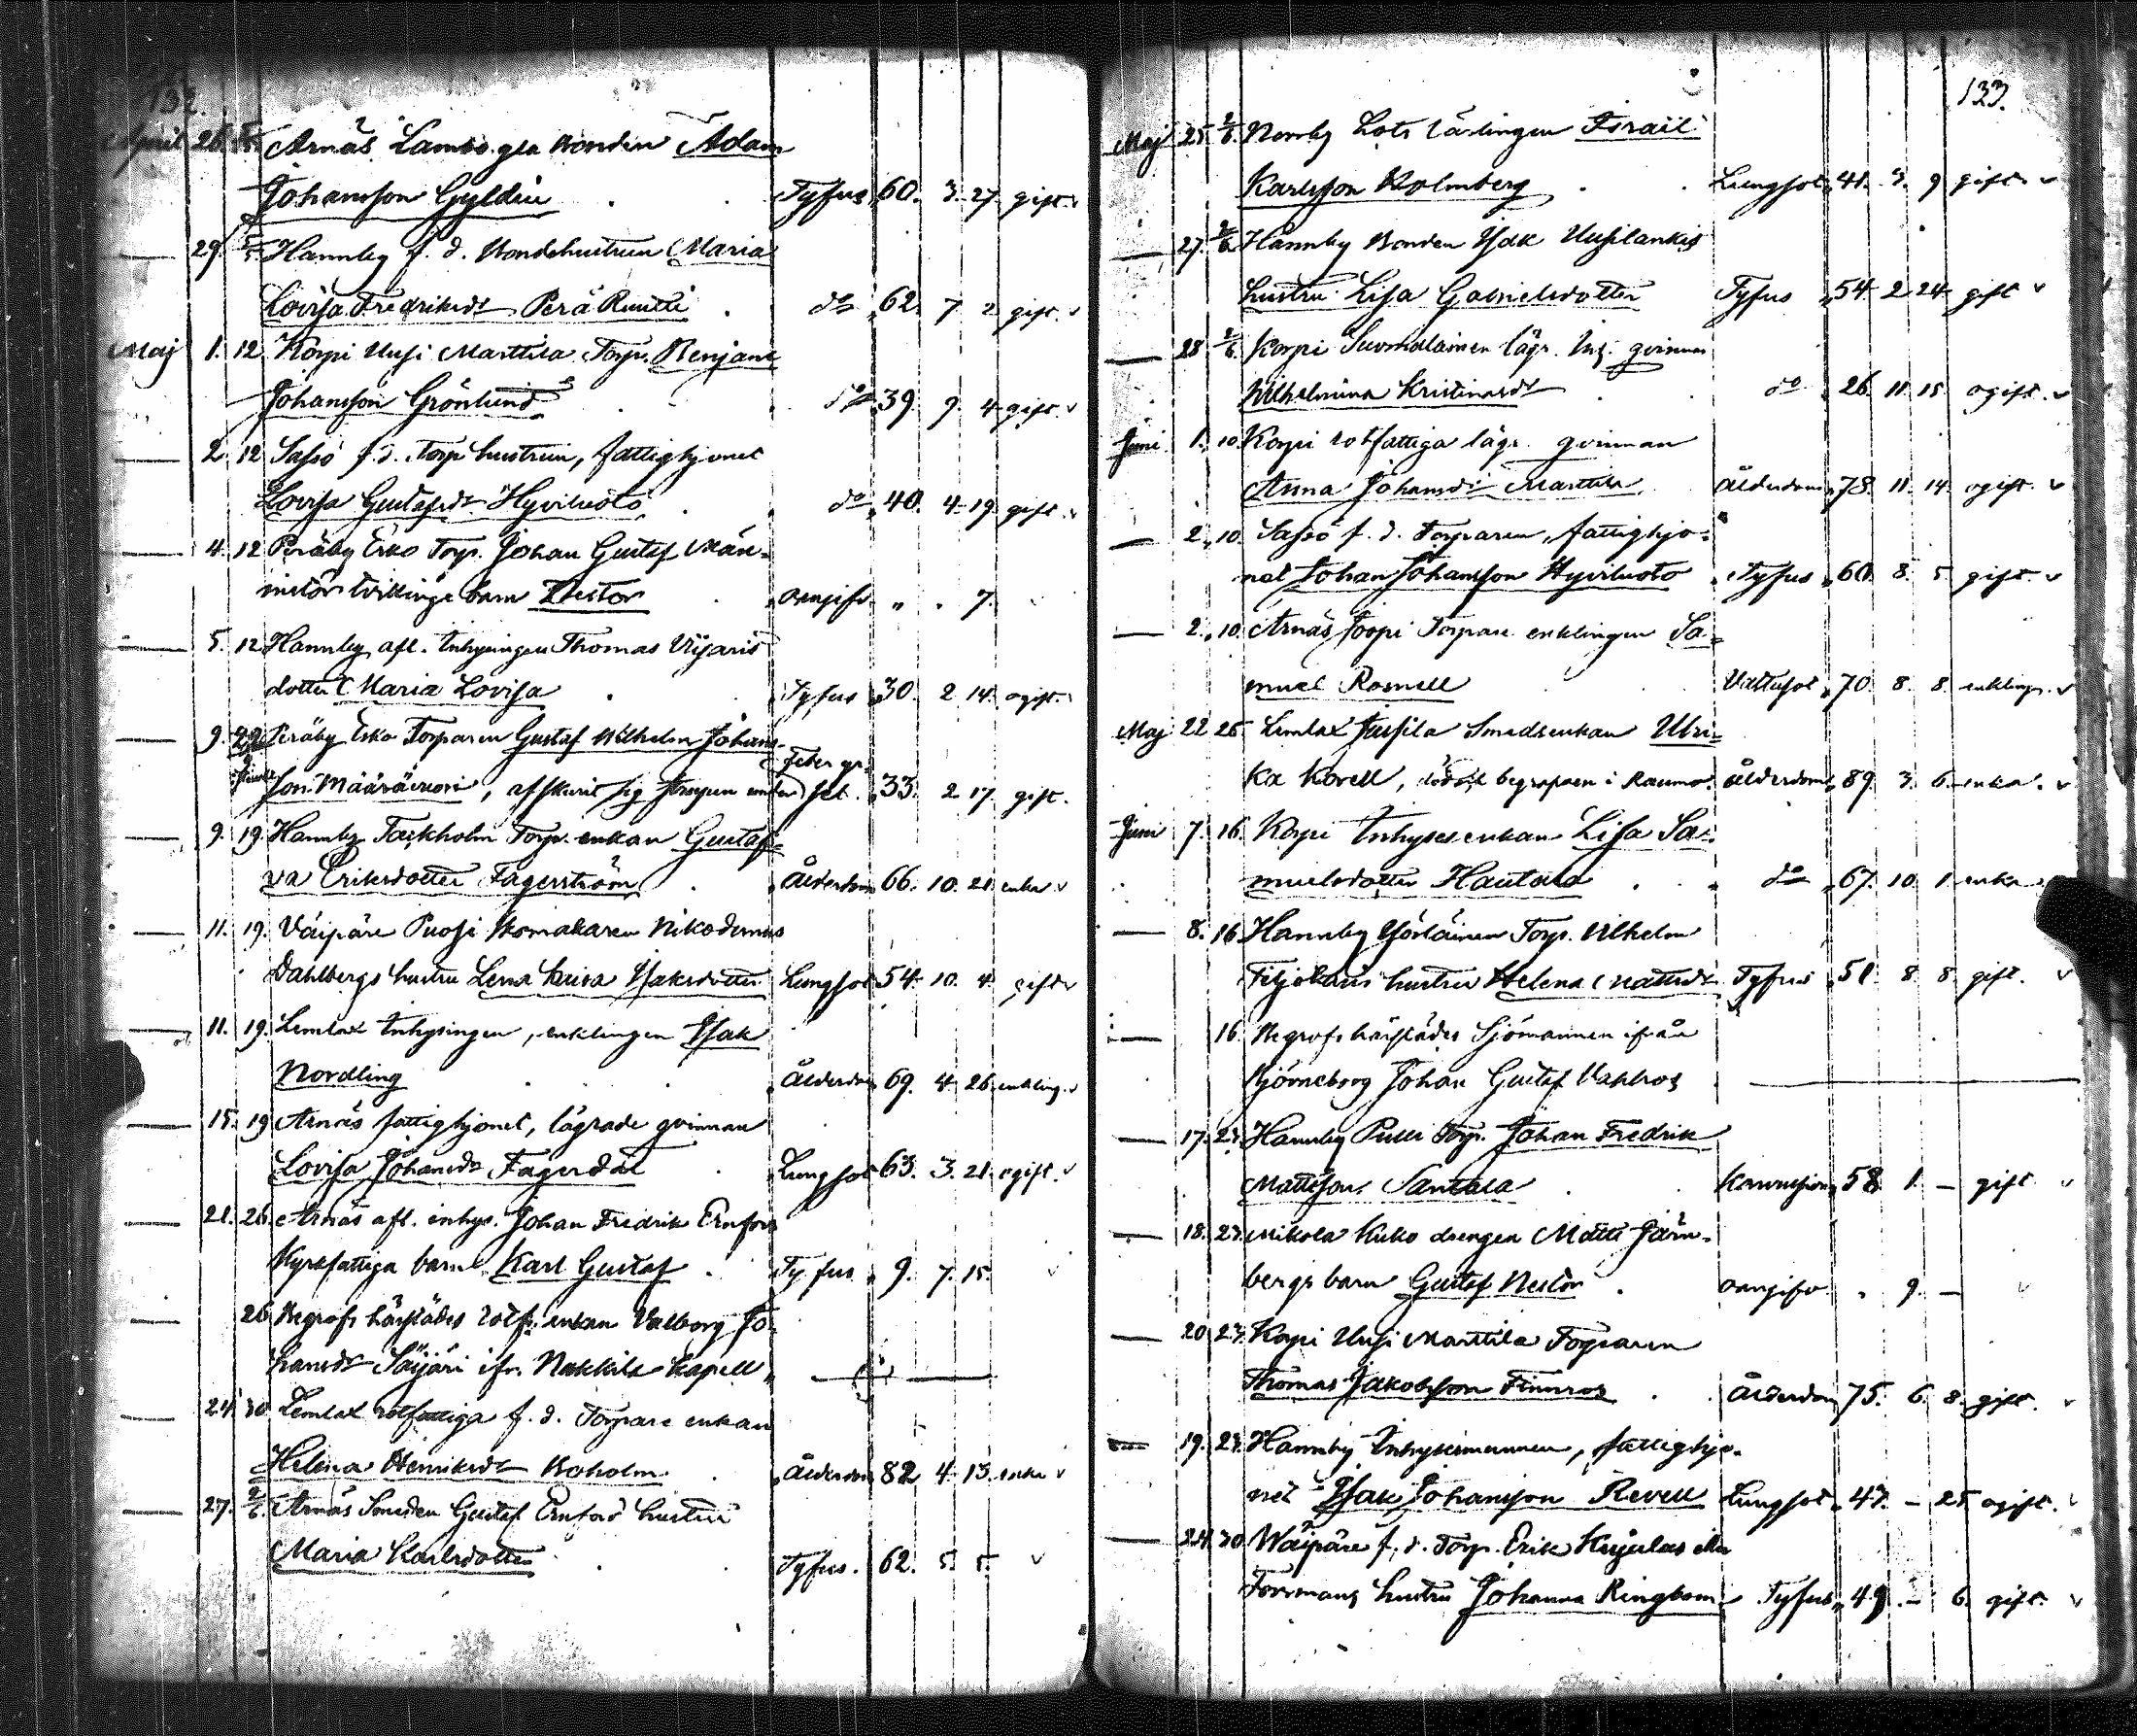 132.
April 26. 5/5. Arnäs Lambo gla bonden Adam
Johansson Gyldén Tyfus 60. 3. 27. gift. v
— 29. 5/5. Hannby f. d. Bondehustrun Maria
Lovisa Fredriksdr Perä Ruutti do 62. 7 2 gift. v
Maj 1. 12 Korpi Uusi Marttila Torp. Benjam
Johansson Grönlund do 39. 9. 4 gift. v
— 2. 12 Sassö f. d. Torp. hustrun, fattighjonet
Lovisa Gustafsdr Hyviluoto do 40. 4. 19. gift. v
— 4. 12 Peräby Erko Torp. Johan Gustaf Män-
tvillinge barn Nestor oangifv. " . 7.
— 5. 12. Hannby afl. Inhysingen Thomas
dotter Maria Lovisa Tyfus 30. 2 14. ogift. v
— 9. 29. Peräby Esko Torparen Gustaf Wilhelm Johans-
son Määräivuori, afskurit sig strupen under Feber yr-
sel. 33. 2 17. gift.
— 9. 19. Hannby Tackholm Torp. enkan Gustaf-
va Eriksdotter Fagerström Ålderdom 66. 10. 21. enka v
— 11. 19. Vaipäre Puosi Skomakaren Nikodemus
Dahlbergs hustru Lena Kaisa Isaksdotter Lungsot 54. 10. 4. gift v
— 11. 19. Lemlax Inhysingen, enklingen Isak
Nordling Ålderdom 69. 4. 26. enkling. v
— 15. 19 Arnäs fattighjonet, lägrade qvinnan
Lovisa Johansdr Fagerdal Lungsot 63. 3. 21. ogift. v
— 21. 26. Arnäs afl. inhys. Johan Fredrik Ernfors
Kyrkfattiga barn Karl Gustaf Tyfus 9. 7. 15. v
— 26 Begrofs härstädes rotf. enkan Valborg Jo-
hansdr Säijäri ifr. Nakkila kapell —
— 24. 30 Lemlax rotfattiga f. d. Torpare enkan
Helena Henriksdr Boholm Ålderdom 82. 4. 13. enka v
— 27. 2/6. Arnäs Smeden Gustaf Ernfors hustru
Maria Karlsdotter Tyfus. 62. 5. 5. v
133.
Maj 25. 2/6. Norrby Lots lärlingen Israil
Karlsson Holmberg Lungsot 41. 3. 9 gift. v
— 27. 2/6. Hannby Bonden Isak Uusilankis
hustru Lisa Gabrielsdotter Tyfus 54. 2 24. gift v
— 28. 2/6. Korpi Suomalainen lägr. Inh. qvinnan
Wilhelmina Kristinasdr do 26. 11. 15. ogift. v
Juni 1. 10. Korpi rotfattiga lägr. qvinnan
Anna Johansdr Marttila Ålderdom 78. 11. 14. ogift. v
— 2. 10. Sassö f. d. Torparen, fattighjo-
net Johan Johansson Hyviluoto Tyfus 60. 8. 5. gift. v
— 2. 10. Arnäs Joopi Torpare enklingen Sa-
muel Rosnell Vattusot 70. 8. 8. enkling. v
Maj 22 26 Lemlax Jussila Smedsenkan Ulri-
ka Korell, begrafven i Raumo. Ålderdom 89. 3. 6. enka. v
Juni 7. 16. Korpi Inhyses enkan Lisa Sa-
muelsdotter Hautala do 67. 10. 1. enka
— 8. 16 Hannby Torp. Vilhelm
hustru Helena Mattsdr Tyfus 51. 8 8. gift. v
— 16. Begrofs härstädes Sjömannen ifrån
Björneborg Johan Gustaf Vahlros —
— 17. 23. Hannby Torp. Johan Fredrik
Mattsson Santala 58. 1. — gift v
— 18. 23. Mikola Kuko drengen Matts Järn-
bergs barn Gustaf Nestor oangifv. . 9. — v
— 20. 23. Korpi Uusi Marttila Torparen
Thomas Jakobsson Finnros Ålderdom 75. 6. 8. gift. v
— 19. 23. Hannby Inhysesmannen, fattighjo-
net Isak Johansson Revell Lungsot 47. — 25. ogift. v
— 24. 30. Waipäre f. d. Torp. Erik Kujulas eller
Forsmans hustru Johanna Ringbom Tyfus 49. — 6. gift. v